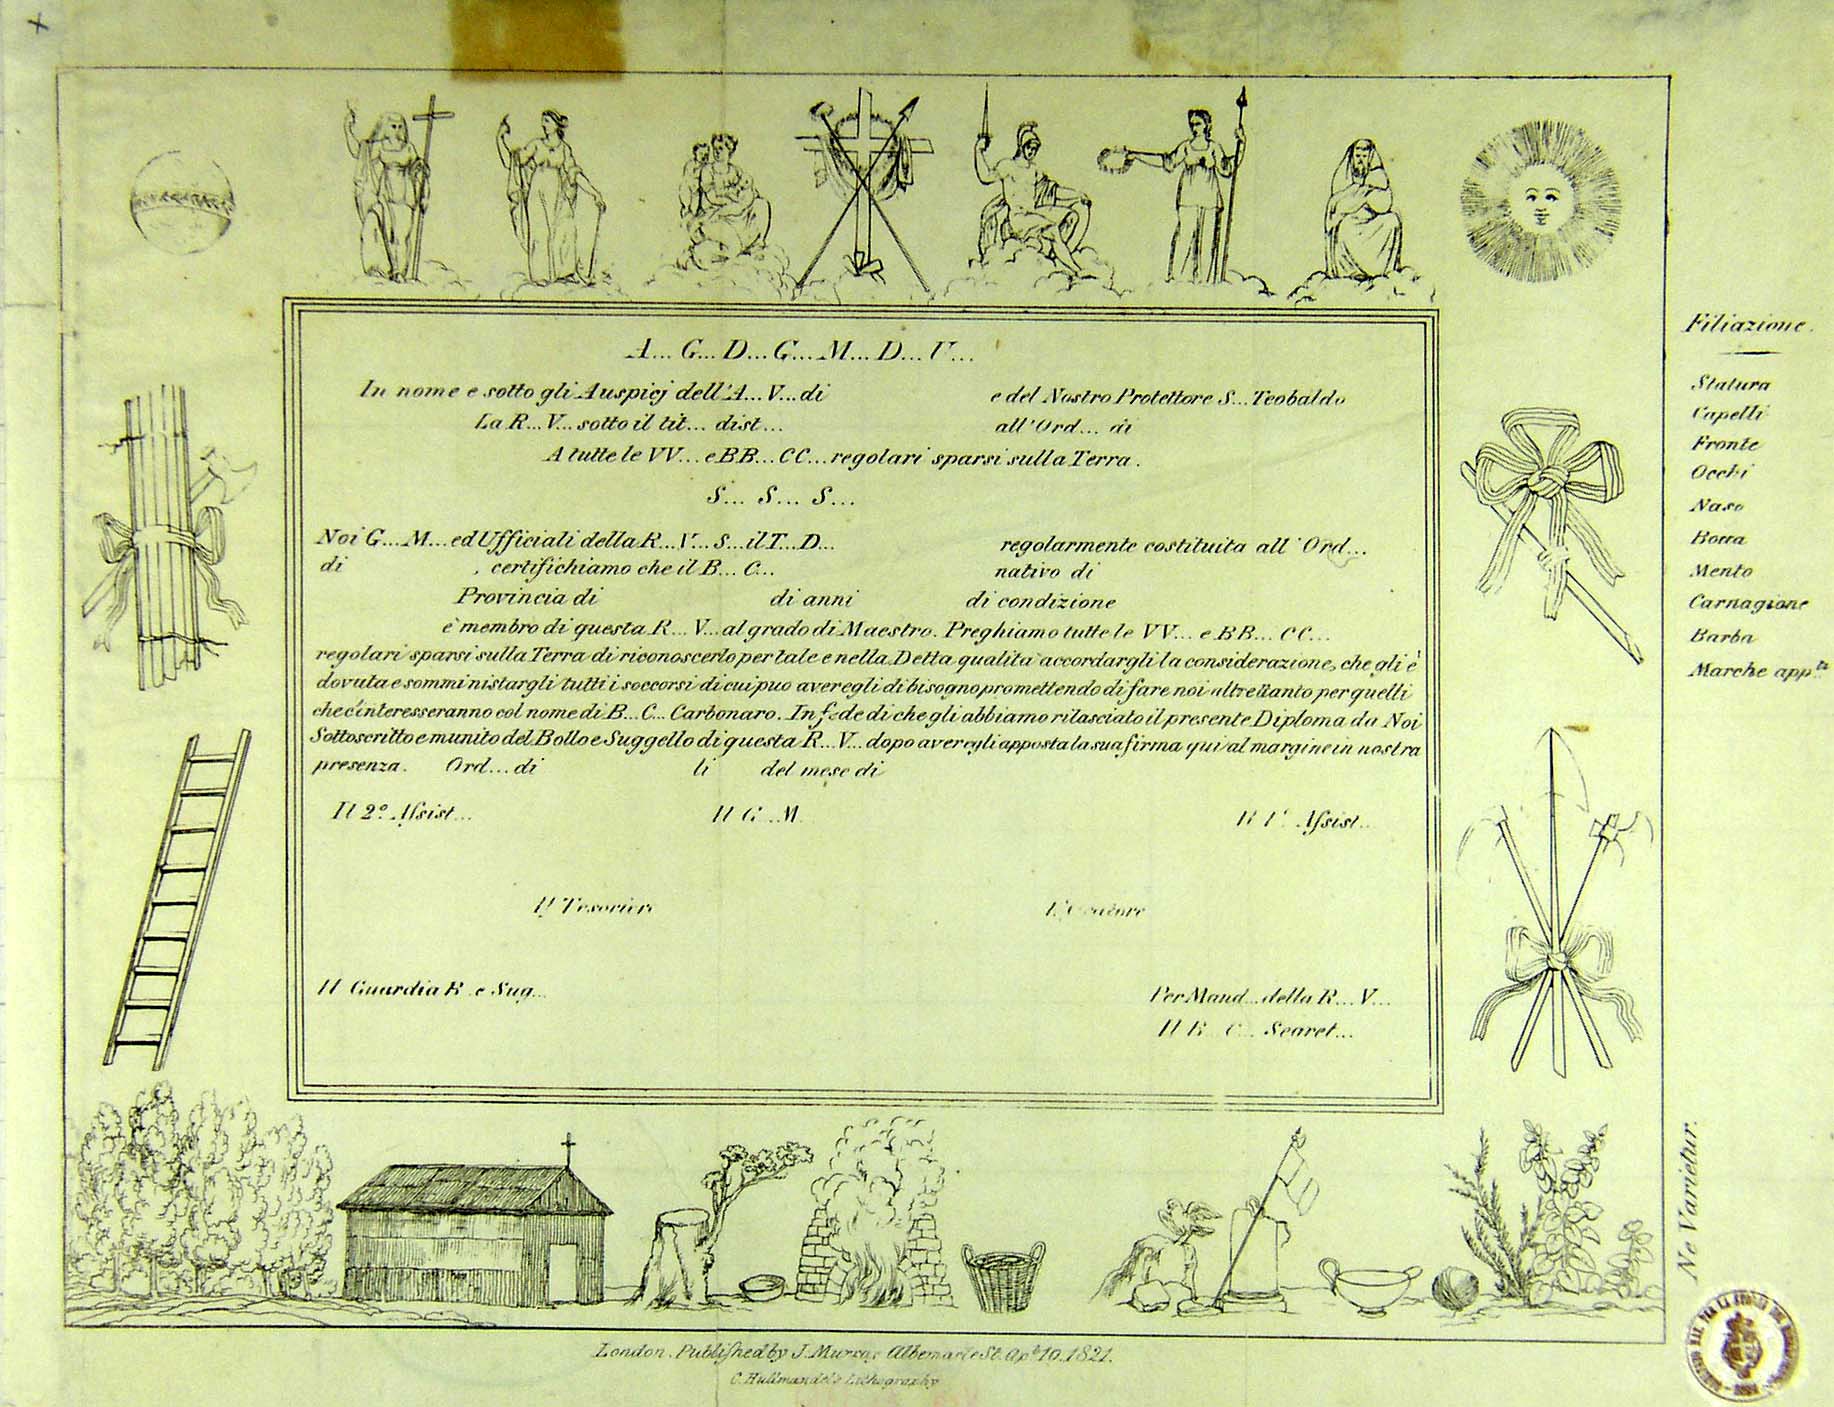 A... G... D... G... M... D... U...
In nome e sotto gli Auspicj dell'A... V... di e del Nostro Protettore S... Teobaldo
La R... V... sotto il tit... dist... all'Ord... di
A tutte le VV... e BB... CC... regolari sparsi sulla Terra.
S... S... S...
Noi G... M... ed Ufficiali della R... V... S... il T... D... regolarmente costituita all'Ord...
di , certifichiamo che il B... C... nativo di
Provincia di di anni di condizione
è membro di questa R... V... al grado di Maestro. Preghiamo tutte le VV... e BB... CC...
regolari sparsi sulla Terra di riconoscerlo per tale e nella Detta qualità accordargli la considerazione, che gli è
dovuta e somministargli tutti i soccorsi di cui puo aver egli di bisogno promettendo di fare noi altrettanto per quelli
che c'interesseranno col nome di B... C... Carbonaro. In fede di che gli abbiamo rilasciato il presente Diploma da Noi
Sottoscritto e munito del Bollo e Suggello di questa R... V... dopo aver egli apposta la sua firma qui al margine in nostra
presenza. Ord... di li del mese di
Il 2º. Assist... Il G... M. Il 1º. Assist..
Il Tesoriere L'Oratore
Il Guardia B.. e Sug... Per Mand... della R... V...
Il B.. C... Segret...
Filiazione.
Statura
Capelli
Fronte
Occhi
Naso
Bocca
Mento
Carnagione
Barba
Marche appti
Ne Varietur.
London. Published by J. Murray Albemarle St. Apl. 10. 1821.
C. Hullmandel's Lithography